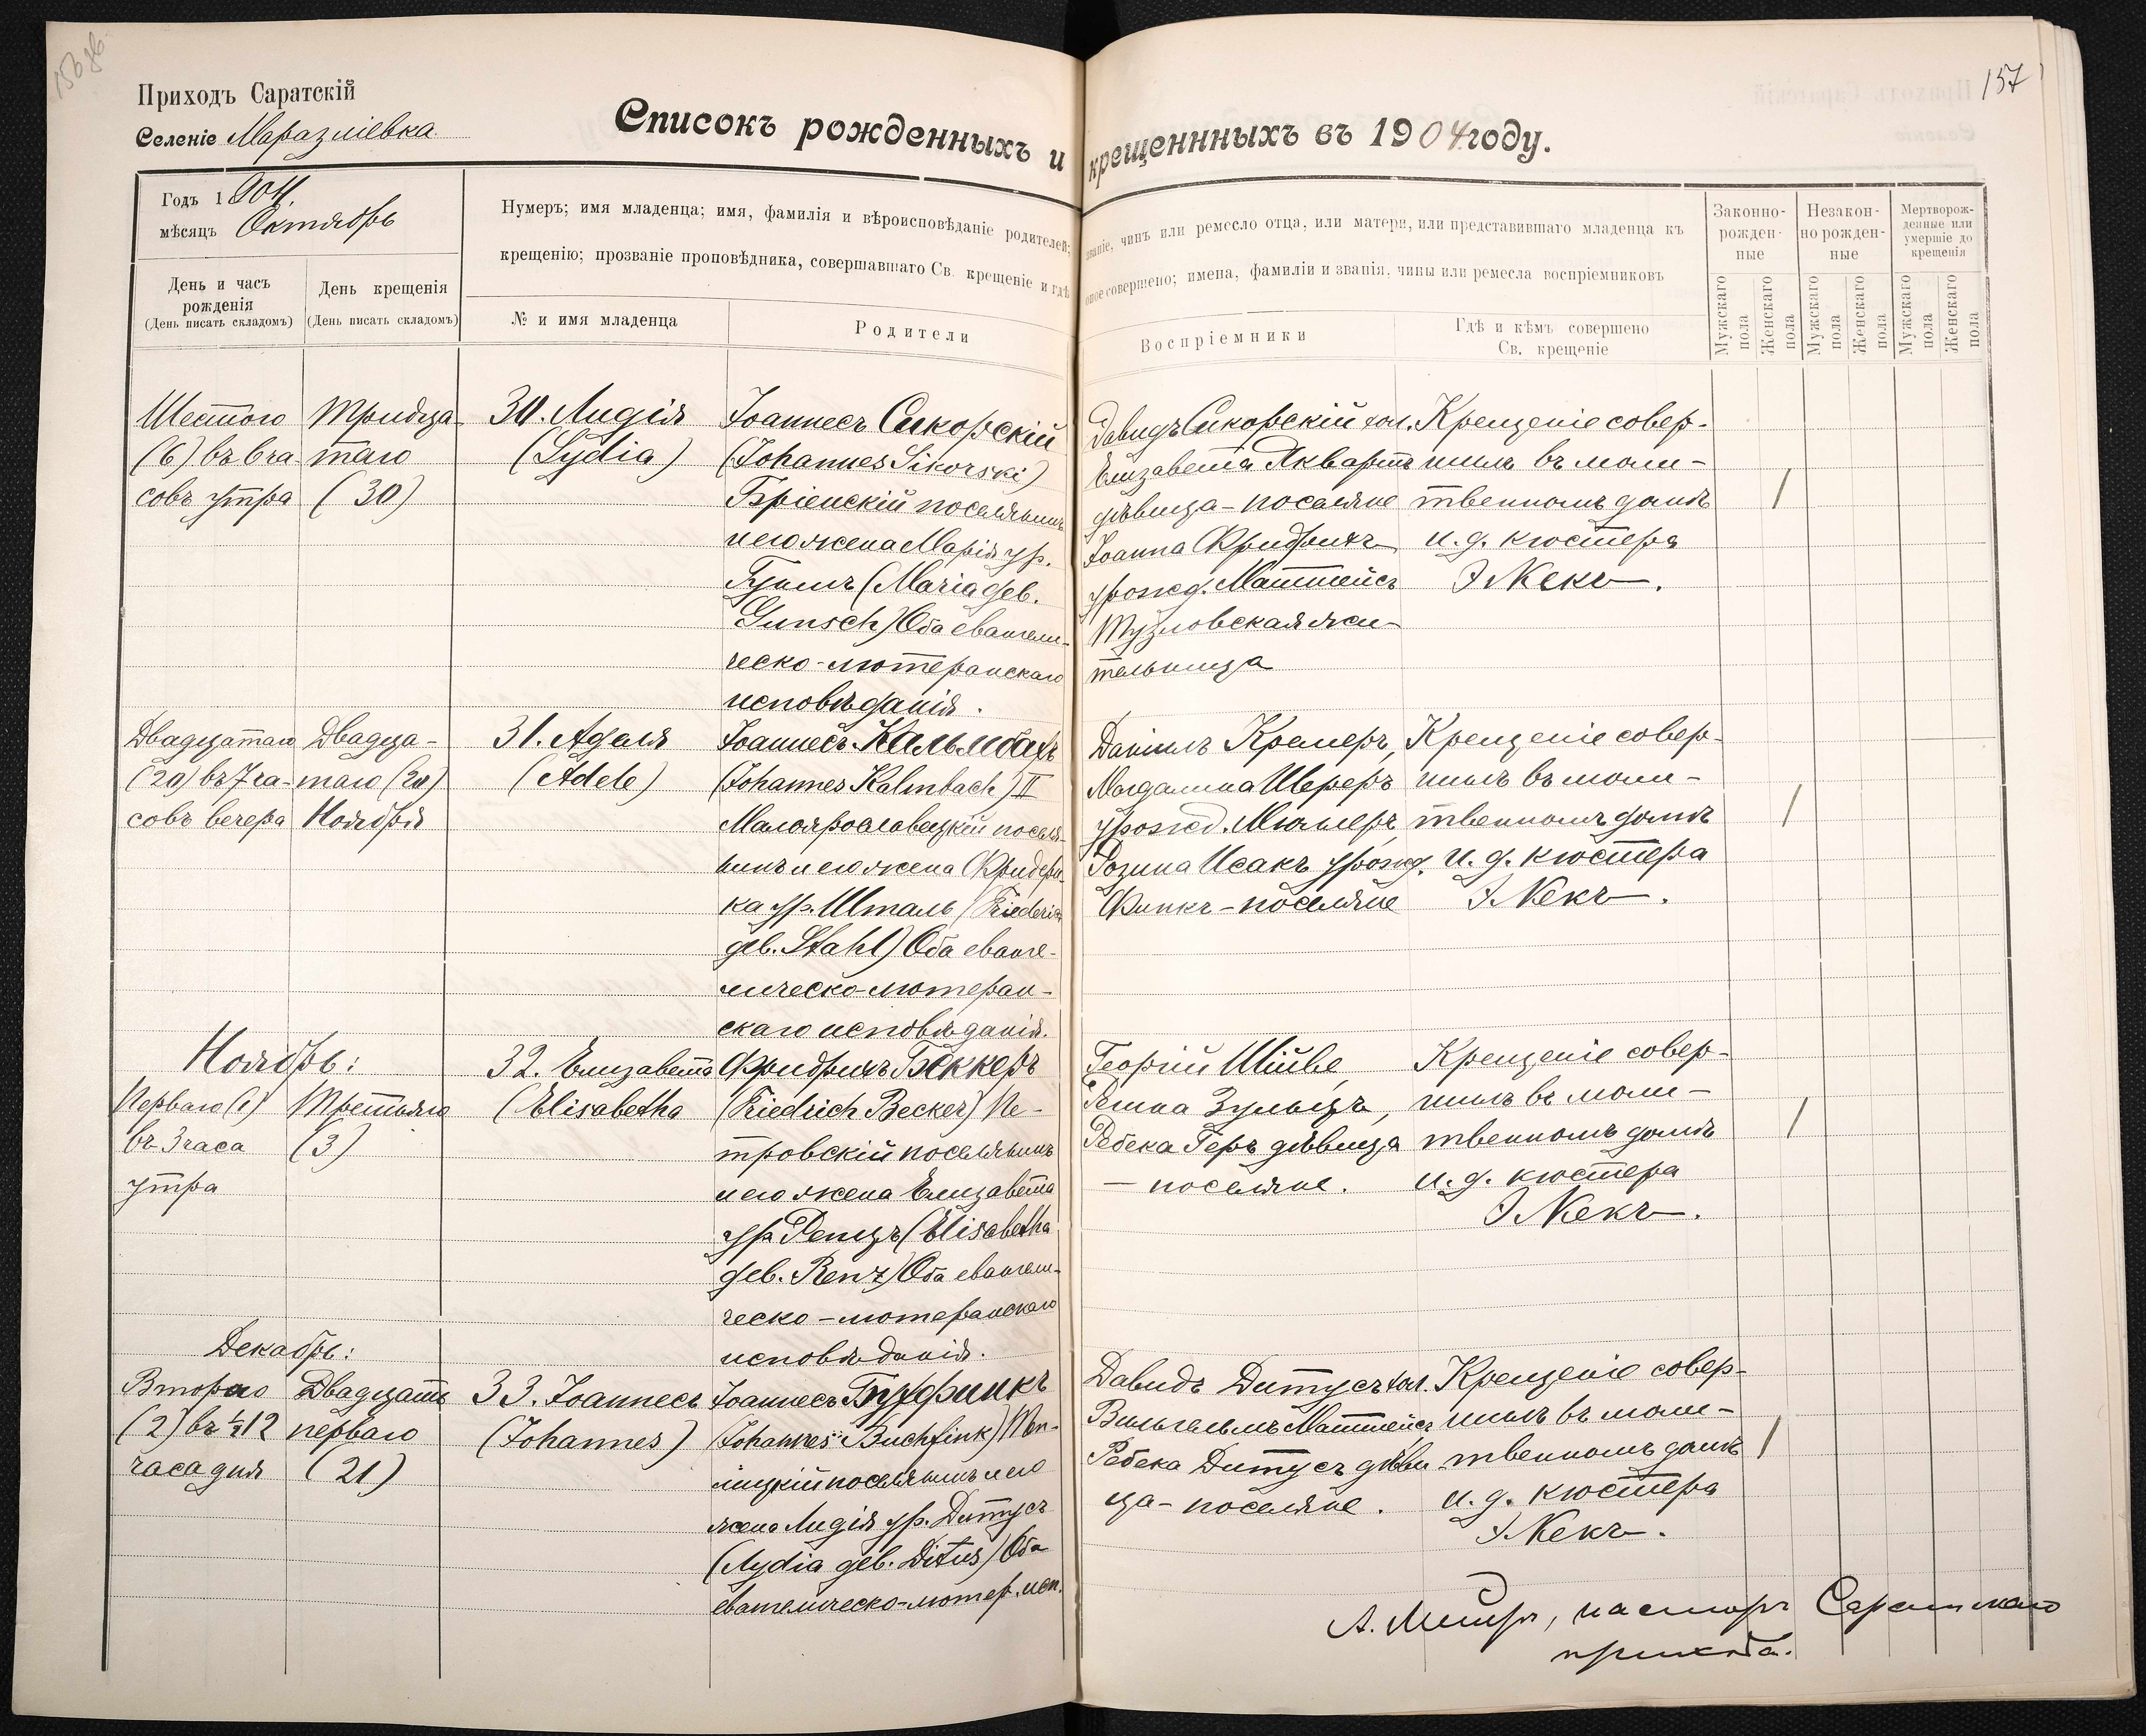 157
Приходъ Саратскій
Селеніе Маразліевка
Списокъ рожденныхъ и крещеннныхъ въ 1904 году.
Годъ 1904.
мѣсяцъ Октябрь
День и часъ рожденія
(День писать складомъ)
День крещенія
(День писать складомъ)
Нумеръ; имя младенца; имя, фамилія и вѣроисповѣданіе родителей;
званіе, чинъ или ремесло отца, или матери, или представившаго младенца къ
крещенію; прозваніе проповѣдника, совершавшаго Св. крещеніе и гдѣ
оное совершено; имена, фамиліи и званія, чины или ремесла воспріемниковъ
№ и имя младенца
Родители
Воспріемники
Гдѣ и кѣмъ совершено
Св. крещеніе
Законно-
рожден-
ные
Незакон-
но рожден-
ные
Мертворож-
денные или
умершіе до
крещенія
Мужскаго пола
Женскаго пола
Мужскаго пола
Женскаго пола
Мужскаго пола
Женскаго пола
Шестого
(6) въ 6 ча-
совъ утра
Тридца-
таго
(30)
30. Лидія
(Lydia)
Іоаннесъ Сикорскій
(Johannes Sikorski)
Бріенскій поселянинъ
и его жена Марія ур.
Гуншъ (Maria geb.
Gunsch) Оба евангели-
ческо-лютеранскаго
исповѣданія.
Давидъ Сикорскій хол.
Елизавета Аквартъ
дѣвица - поселяне
Іоанна Фридрихъ
урожд. Маттейсъ
Тузловская жи-
тельница
Крещеніе совер-
шилъ въ моли-
твенномъ домѣ
и. д. кюстера
Я Некъ.
Двадцатаго
(20) въ 7 ча-
совъ вечера
Двадца-
таго (20)
Ноября
31. Аделя
(Adele)
Іоаннесъ Кальмбахъ
(Johannes Kalmbach) II
Малоярославецкій поселя-
нинъ и его жена Фридери-
ка ур. Шталь (Friederika
geb. Stahl) Оба еванге-
лическо-лютеран-
скаго исповѣданія.
Даніилъ Кремеръ,
Магдалина Шереръ
урожд. Мюллеръ,
Розина Исакъ урожд.
Финкъ - поселяне
Крещеніе совер-
шилъ въ моли-
твенномъ домѣ
и. д. кюстера
Я Некъ.
Ноябрь:
Перваго (1)
въ 3 часа
утра
Третьяго
(3)
32. Елизавета
(Elisabetha
Фридрихъ Беккеръ
(Friedrich Becker) Пе-
тровскій поселянинъ
и его жена Елизавета
ур. Ренцъ (Elisabetha
geb. Renz) Оба евангели-
ческо-лютеранскаго
исповѣданія.
Георгій Шійве,
Зульцъ,
Ребека Геръ дѣвица
- поселяне.
Крещеніе совер-
шилъ въ моли-
твенномъ домѣ
и. д. кюстера
Я Некъ.
Декабрь:
Второго
(2) въ ½12
часа дня
Двадцать
перваго
(21)
33. Іоаннесъ
(Johannes)
Іоаннесъ Бухфинкъ
(Johannes Buchfink)
поселянинъ и его
жена Лидія ур. Дитусъ
(Lydia geb. Ditus) Оба
евангелическо-лютер. исп.
Давидъ Дитусъ хол.
Вильгельмъ Маттейсъ
Ребека Дитусъ дѣви-
ца - поселяне.
Крещеніе совер-
шилъ въ моли-
твенномъ домѣ
и. д. кюстера
Я Некъ.
А. Мейеръ, пасторъ Саратскаго
прихода.